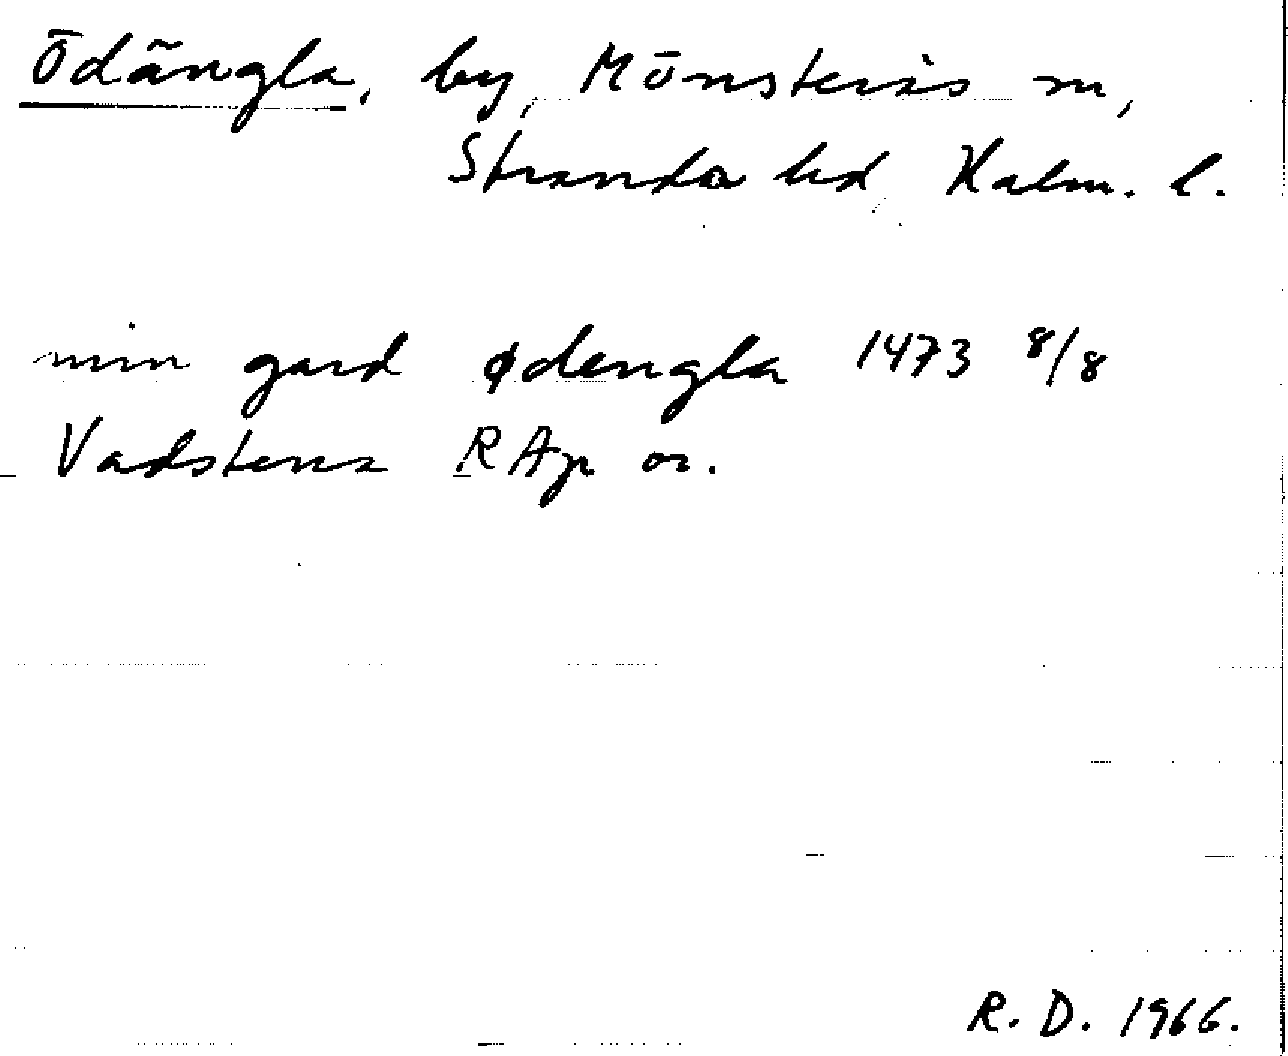 Ödängla, by, Mönsterås sn,
Stranda hd Kalm. l.
min gard ødengla 1473 8/8
Vadstena RAp or.
R. D. 1966.